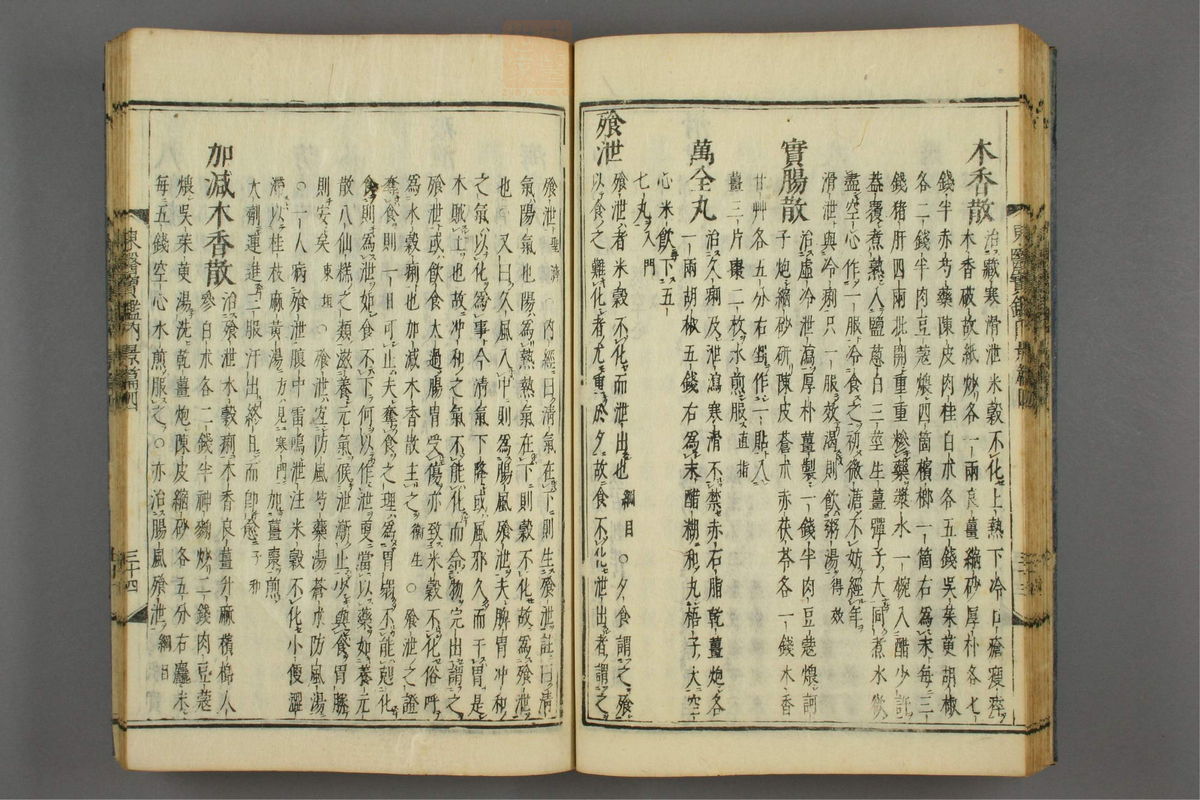 木香散
治藏寒滑泄米穀不化上熱下冷口瘡瘦瘁
木香破故紙炒各一兩良薑縮砂厚朴各七
錢半赤芍藥陳皮肉桂白朮各五錢吳茱萸胡椒
各二錢半肉豆蔻煨四箇檳榔一箇右爲末每三
錢猪肝四兩批開重重糝藥漿水一椀入醋少許
盖覆煮熟入鹽葱白三莖生薑彈子大同煮水欲
盡空心作一服冷食之初微溏不妨經年
滑泄與冷痢只一服效渴則飮粥湯得效
實腸散
治虛冷泄瀉厚朴薑製一錢半肉豆蔻煨訶
子炮縮砂研陳皮蒼朮赤茯苓各一錢木香
甘艸各五分右剉作一貼入
薑三片棗二枚水煎服直指
萬全丸
治久痢及泄瀉寒滑不禁赤石脂乾薑炮各
一兩胡椒五錢右爲末醋糊和丸梧子大空
心米飮下五
七丸入門
飱泄
飱泄者米穀不化而泄出也綱目○夕食謂之飱
以食之難化者尤重於夕故食不化泄出者謂之
飱泄聖濟○內經曰淸氣在下則生飱泄註曰淸
氣陽氣也陽爲熱熱氣在下則穀不化故爲飱泄
也○又曰久風入中則爲腸風飱泄夫脾胃冲和
之氣以化爲事今淸氣下降或風邪久而干胃是
木賊土也故冲和之氣不能化而令物完出謂之
飱泄或飮食太過腸胃受傷亦致米穀不化俗呼
爲水穀痢也加減木香散主之衛生○飱泄之證
奪食則一日可止夫奪食之理爲胃弱不能剋化
食則爲泄如食不下何以作泄更當以藥如養元
散八仙糕之類滋養元氣候泄漸止少與食胃勝
則安矣東垣○飱泄宜防風芍藥湯蒼朮防風湯
○一人病飱泄腹中雷鳴泄注米穀不化小便澀
滯以桂枝麻黃湯方見寒門加薑棗煎
大劑連進三服汗出終日而卽愈子和
加減木香散
治飱泄水穀痢木香良薑升麻檳榔人
參白朮各二錢半神麴炒二錢肉豆蔻
煨吳茱萸湯洗乾薑炮陳皮縮砂各五分右麤末
每五錢空心水煎服之○亦治腸風飱泄綱目
東醫寶鑑內景篇四
三十四